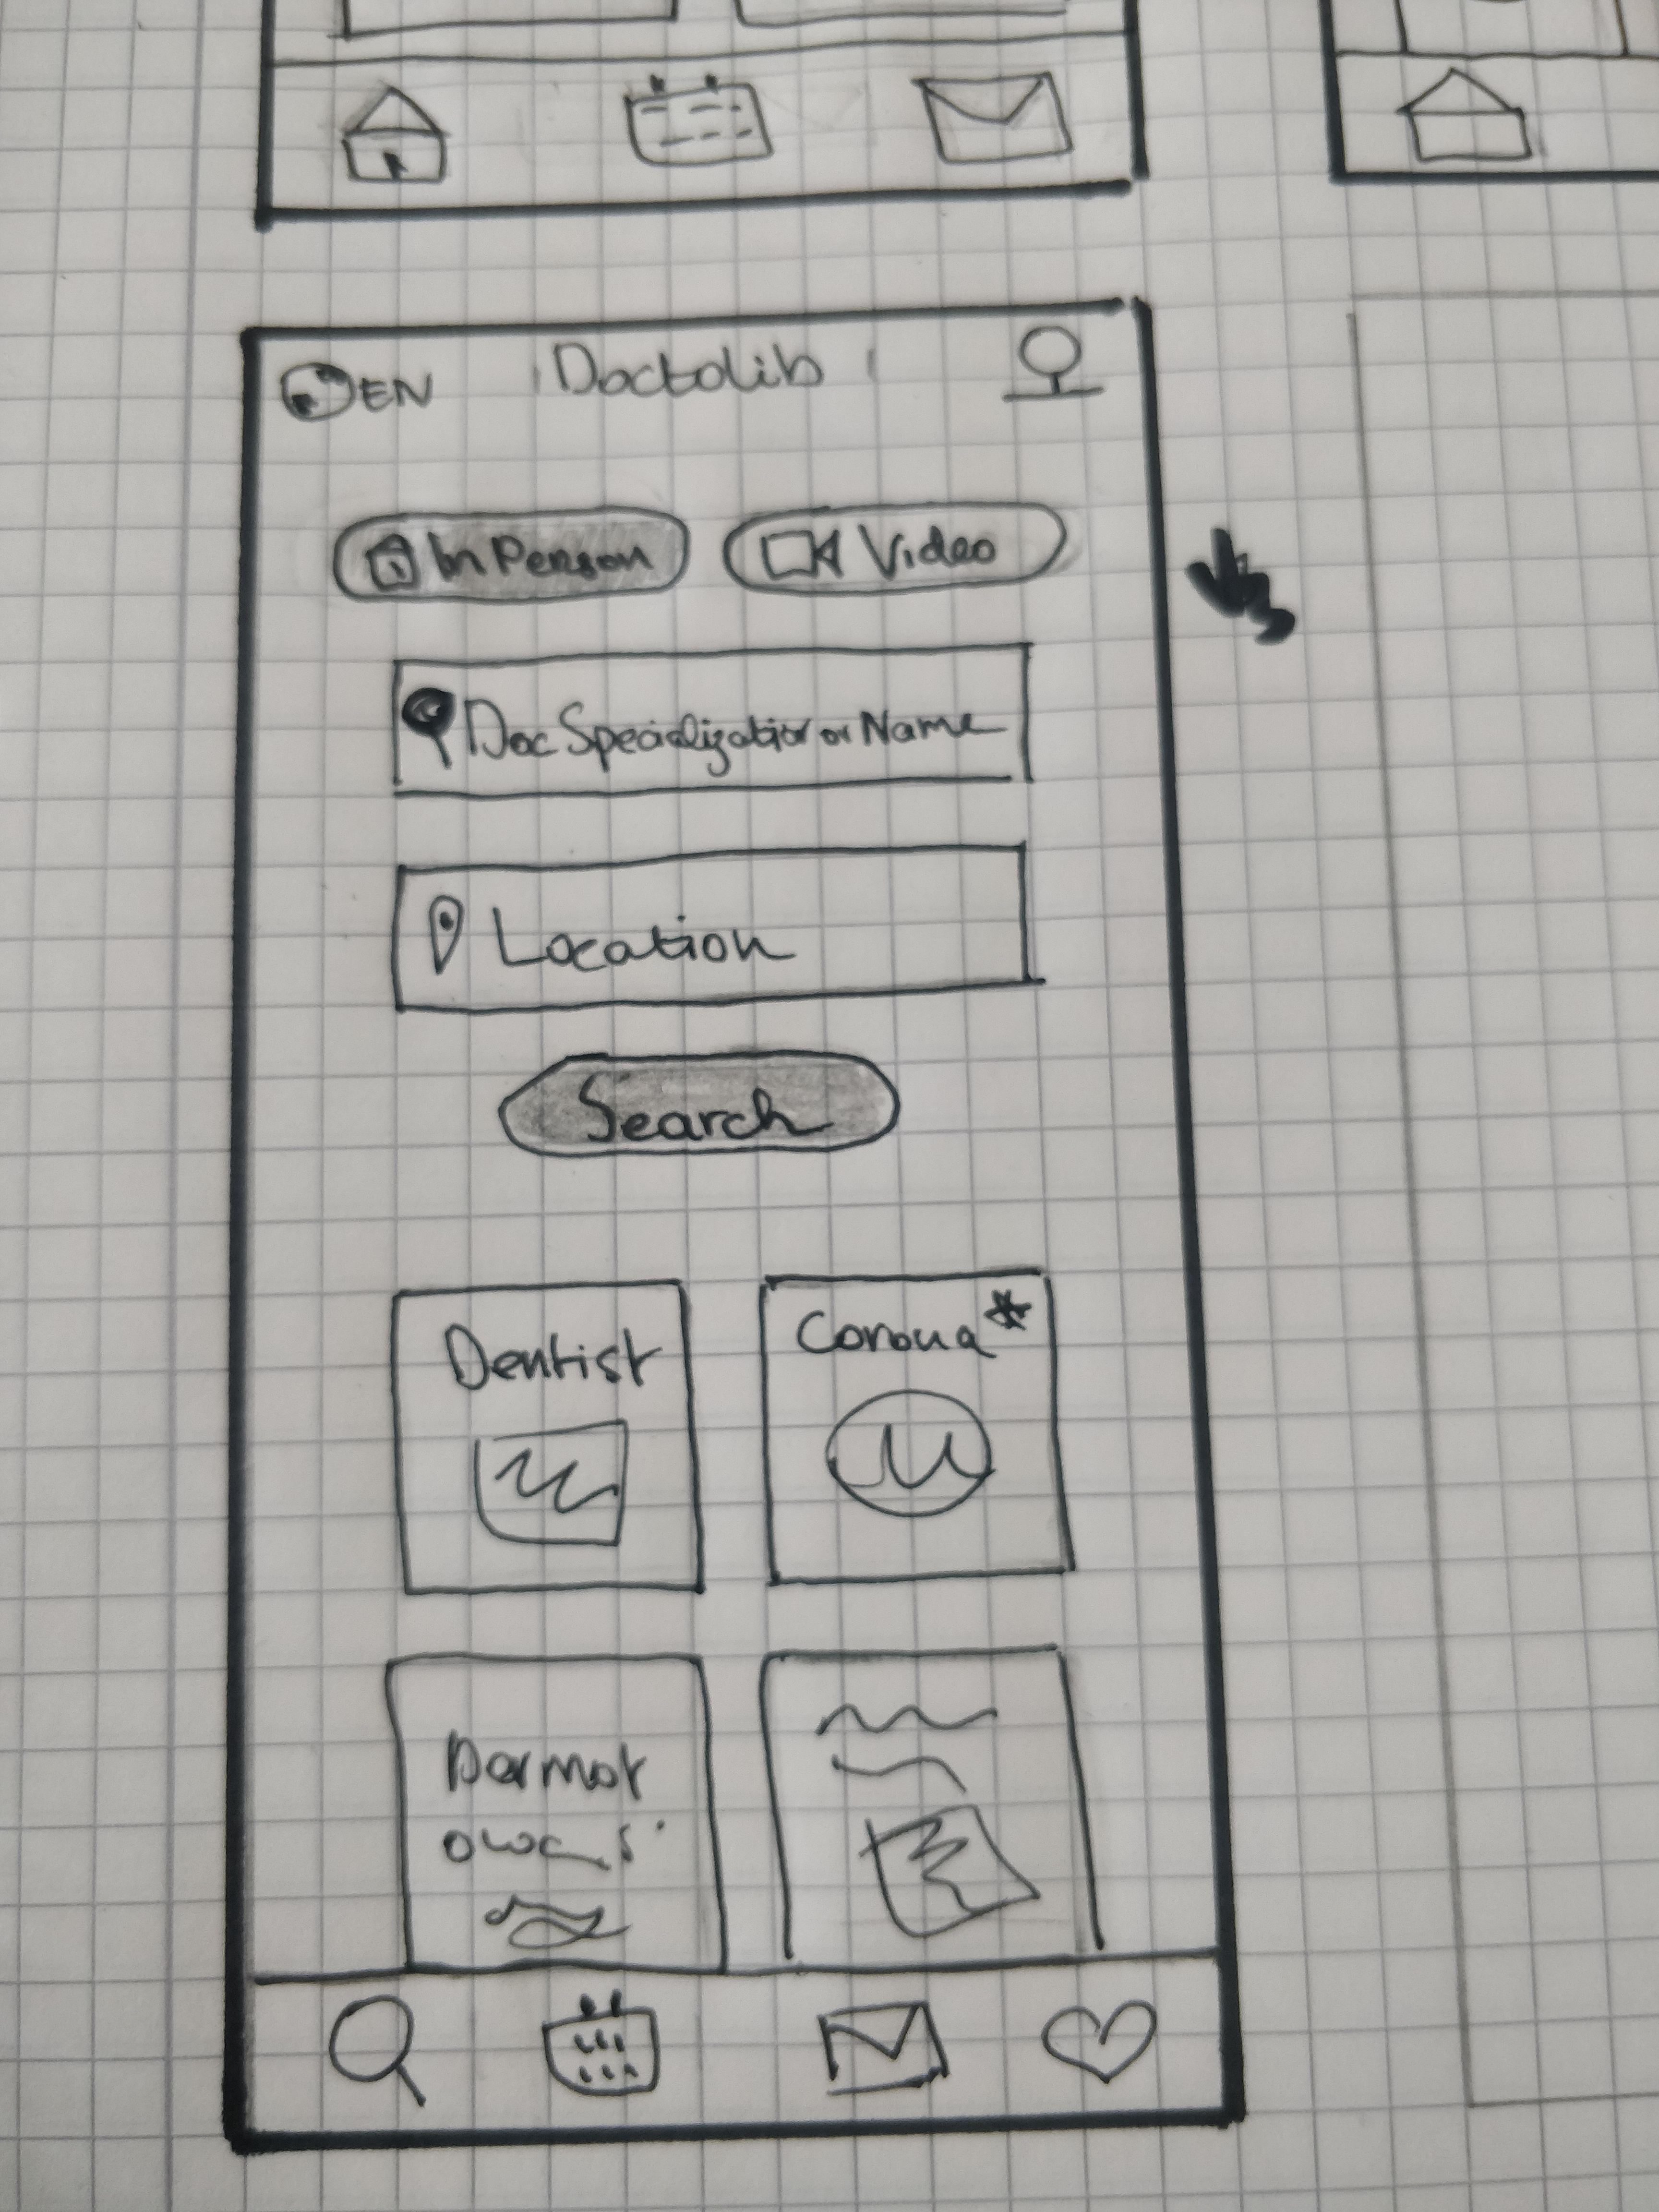 EN Doctolib
In Person Video
Doc Specialization or Name
Location
Search
Dentist Corona*
Dermat